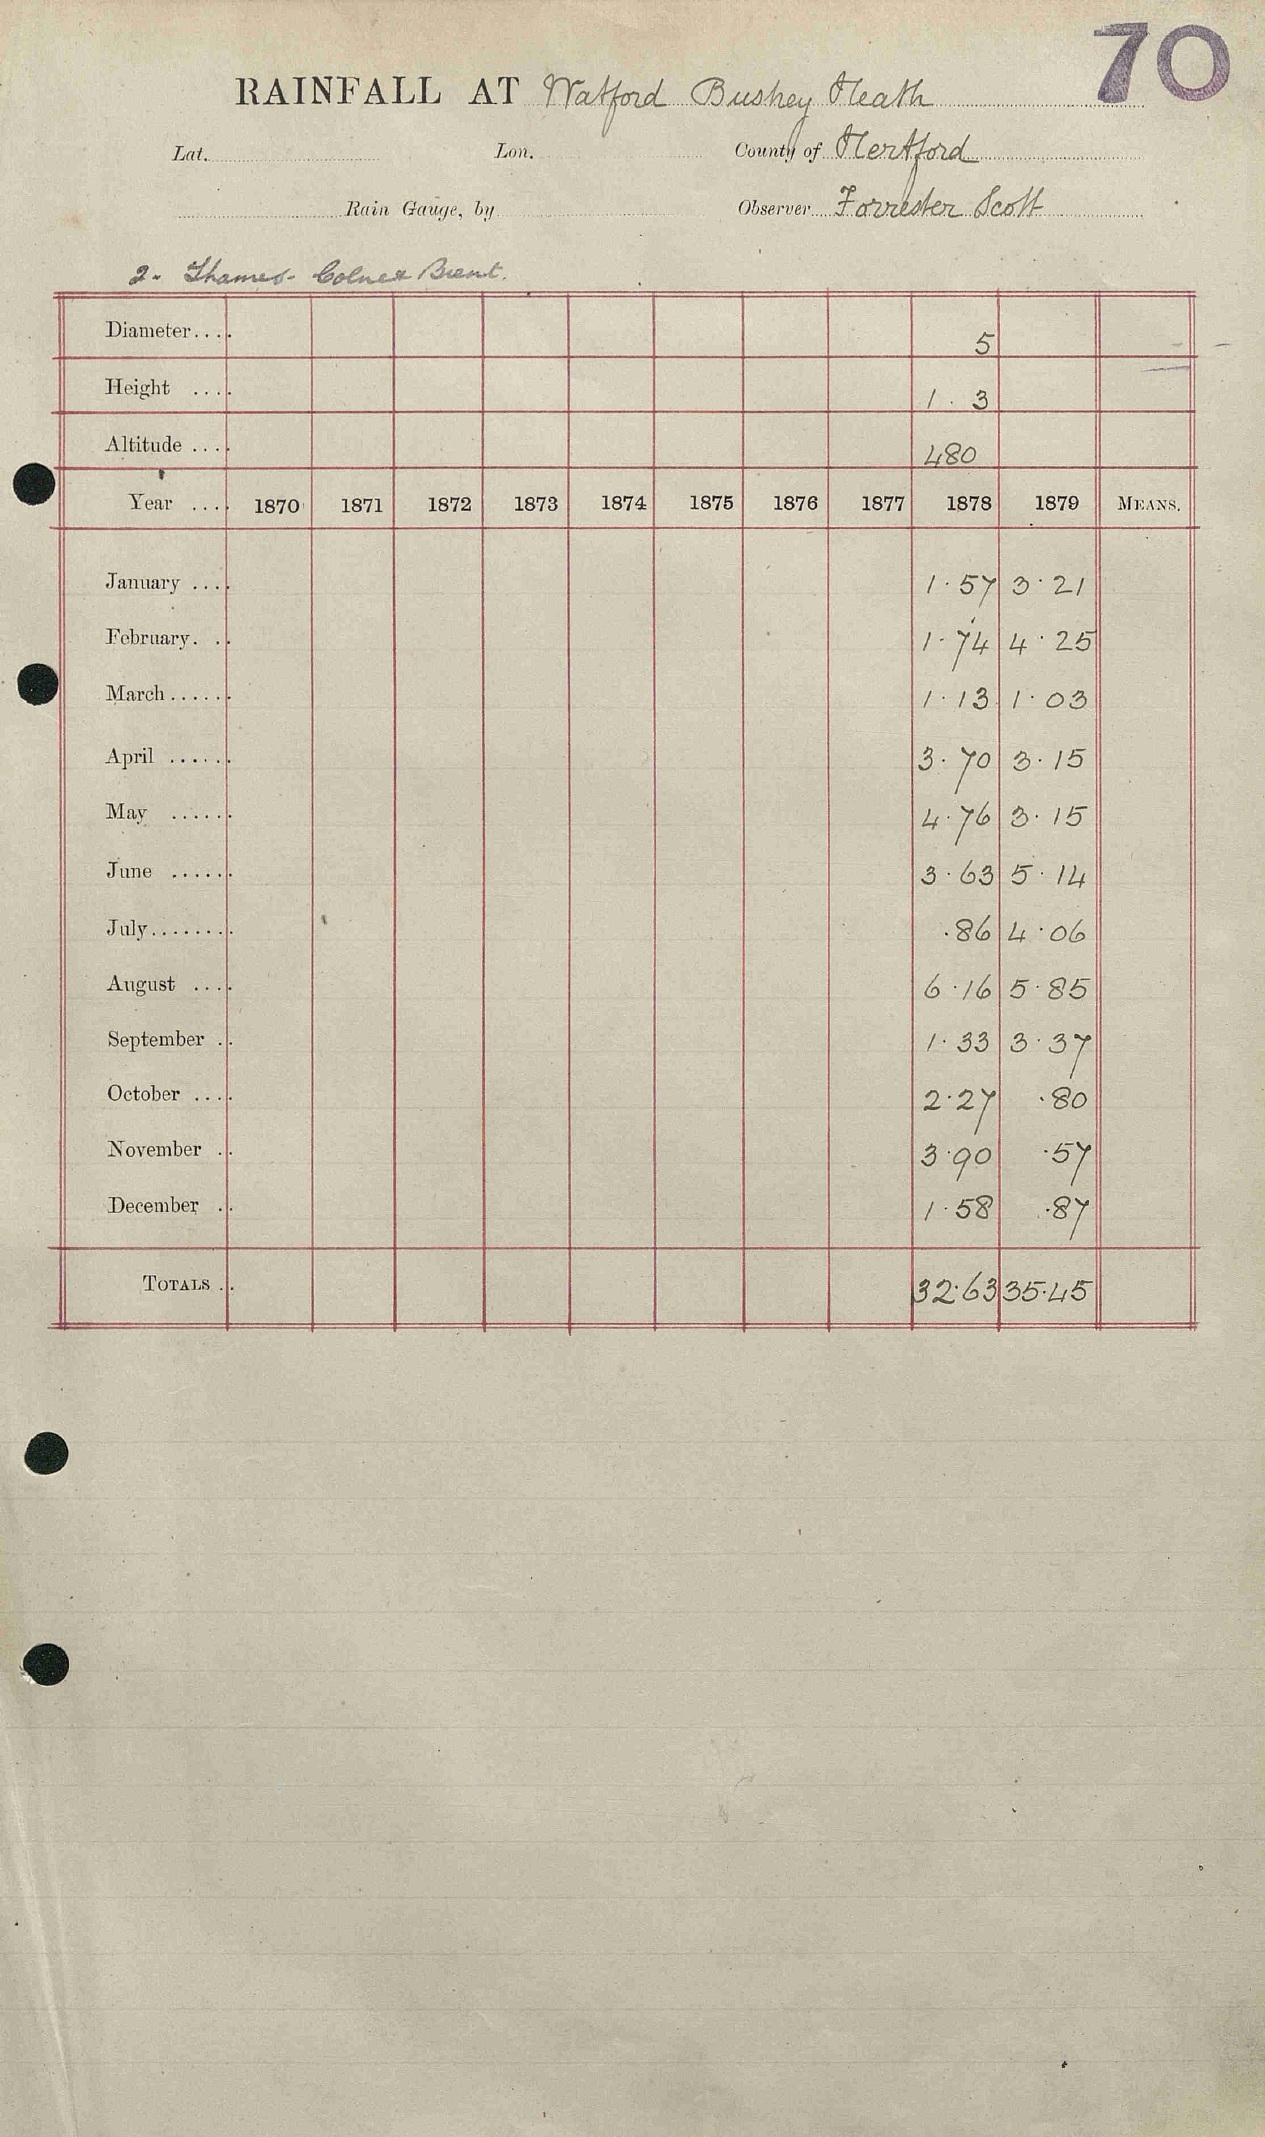 70
RAINFALL AT Watford Bushey Heath
Lat. Lon. County of Hertford
Rain Gauge, by Observer Forrester Scott
2. Thames- Colne & Brent.
Diameter.... 5
Height .... 1. 3
Altitude .... 480
Year .... 1870 1871 1872 1873 1874 1875 1876 1877 1878 1879 MEANS.
January .... 1.57 3.21
February. .. 1.74 4.25
March...... 1.13 1.03
April ...... 3.70 3.15
May ...... 4.76 3.15
June ...... 3.63 5.14
July........ .86 4.06
August .... 6.16 5.85
September .. 1.33 3.37
October .... 2.27 .80
November .. 3.90 .57
December .. 1.58 .87
TOTALS .. 32.63 35.45